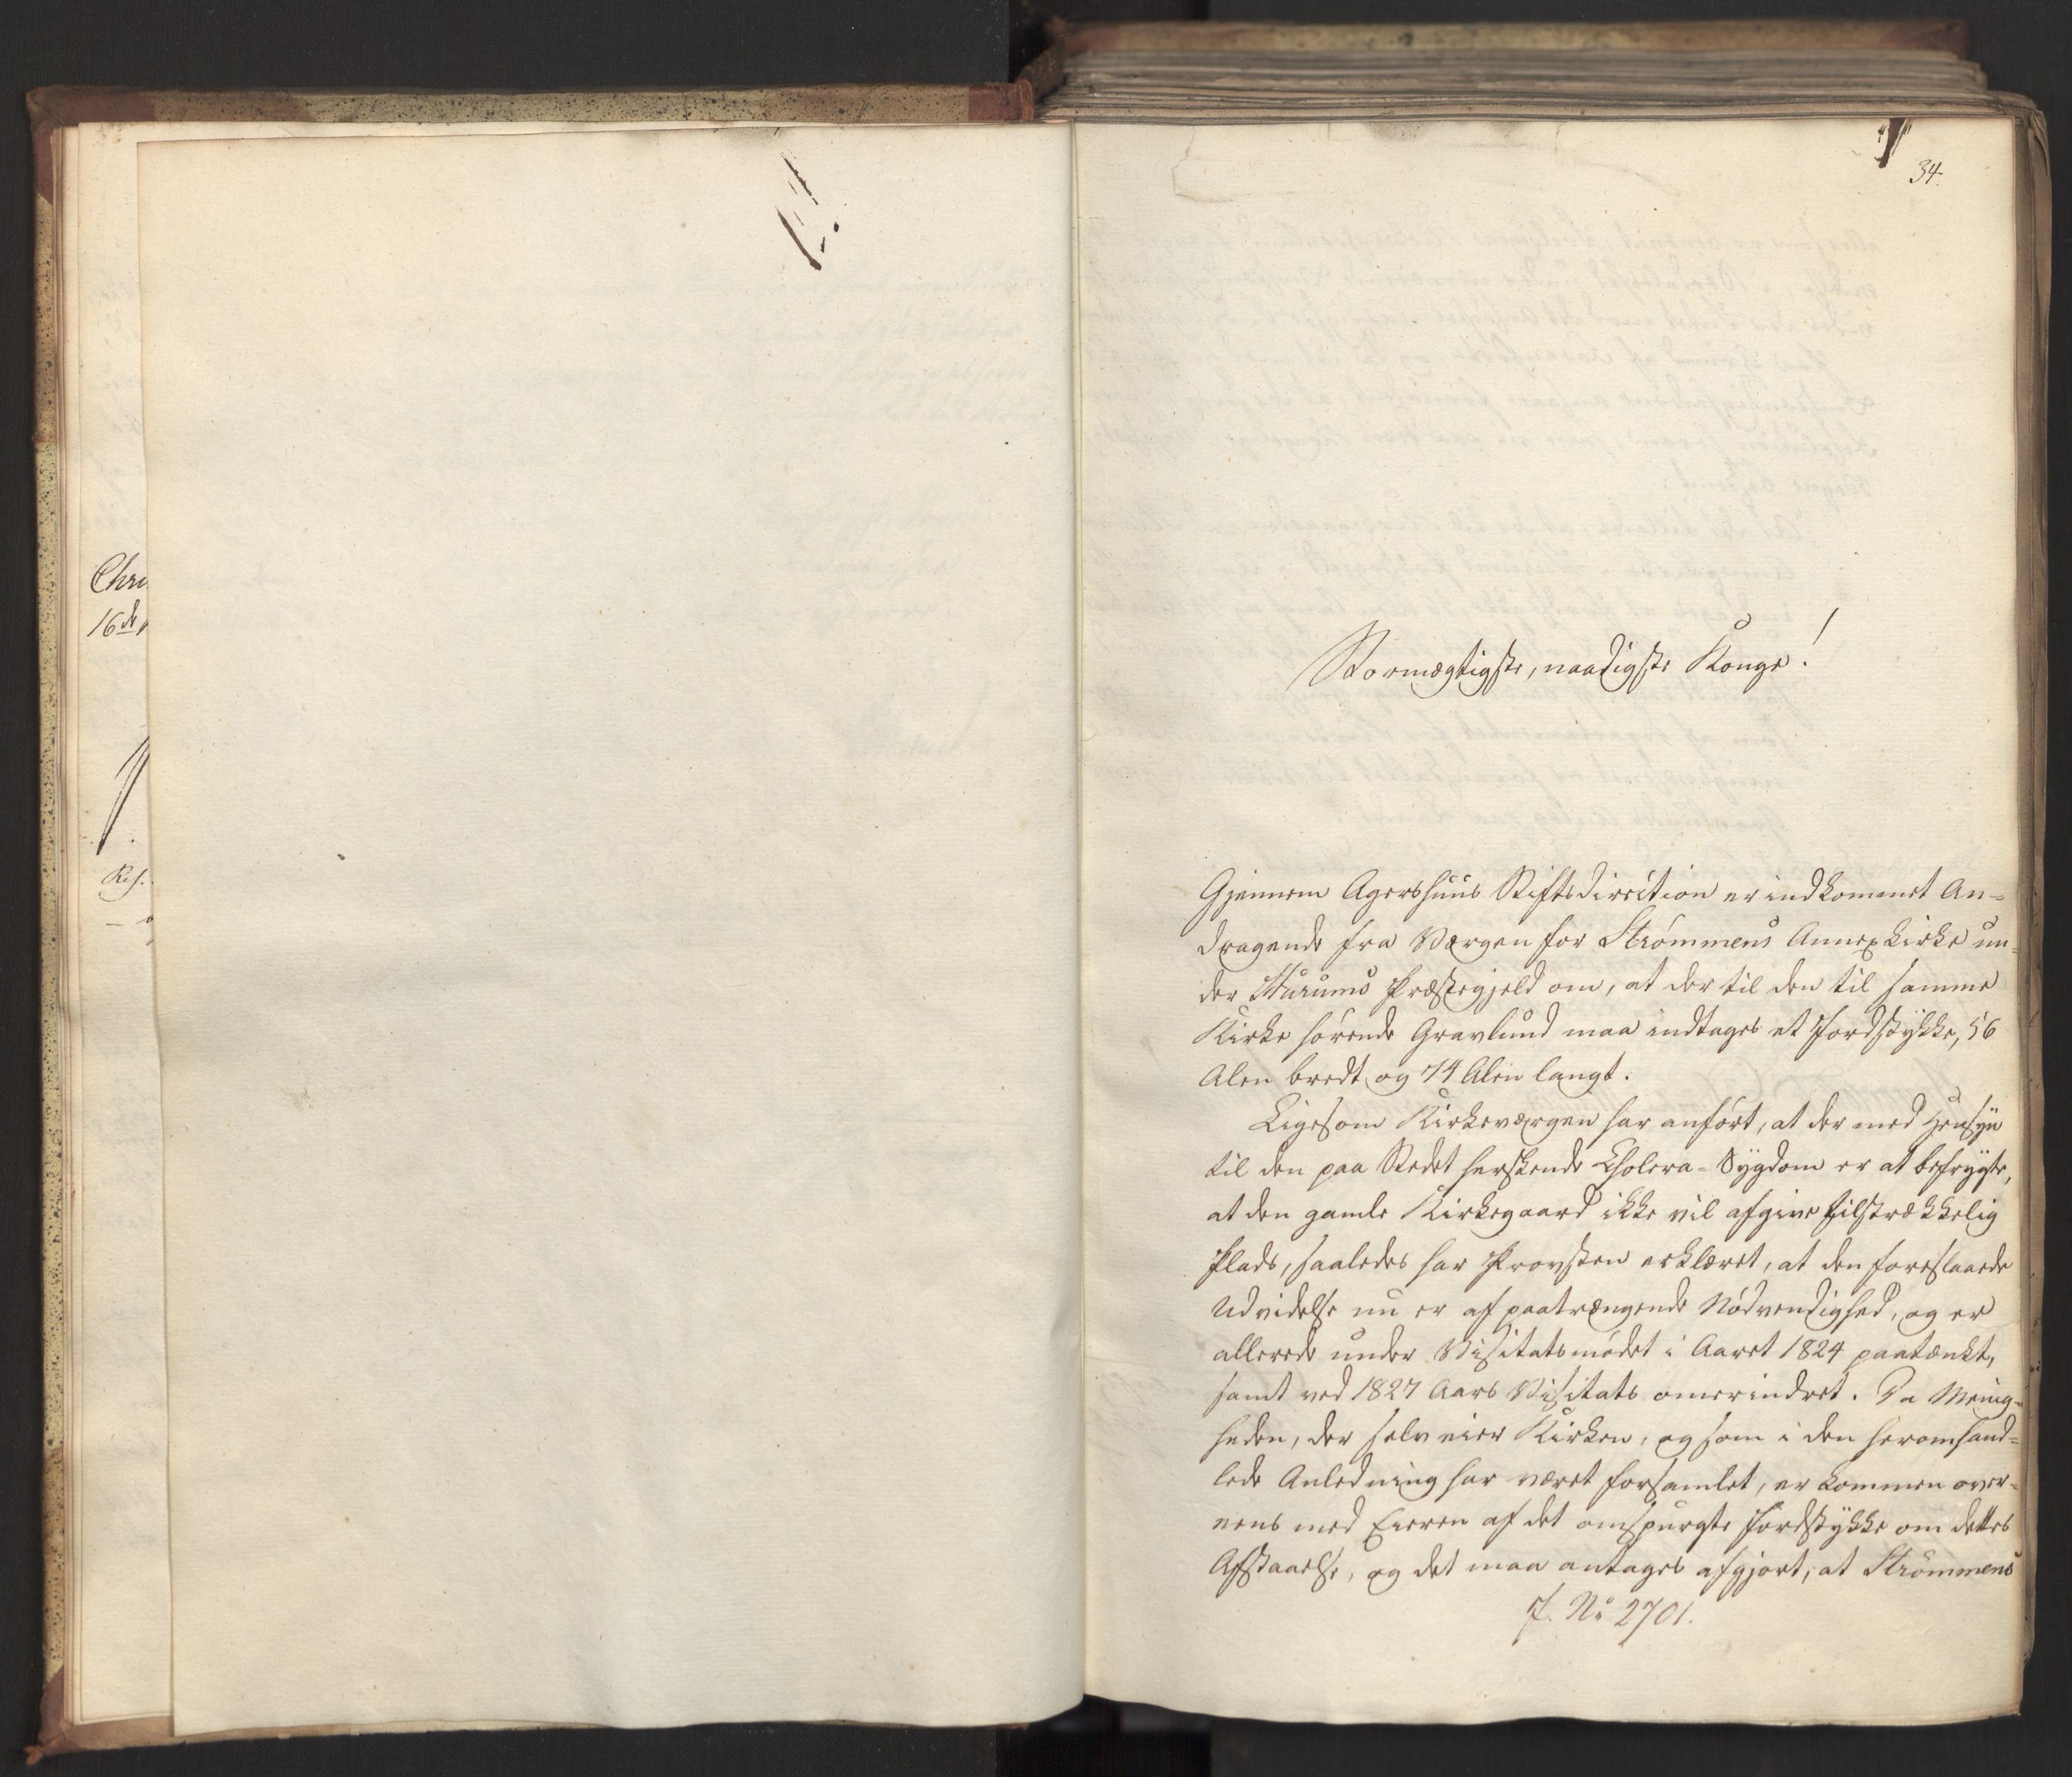 34.
Chri
16de
Res.
Stormægtigste, naadigste Konge!
Gjennem Agershuus Stiftsdirection er indkommet An-
dragende fra Værgen for Strømmens Annexkirke un-
der Hurums Præstegjeld om, at der til den til samme
Kirke hørende Gravlund maa indtages et Jordstykke, 56
Alen bredt og 74 Alen langt.
Ligesom Kirkeværgen har anført, at der med Hensyn
til den paa Stedet herskende Cholera-Sygdom er at befrygte,
at den gamle Kirkegaard ikke vil afgive tilstrækkelig
Plads, saaledes har Provsten erklæret, at den foreslaaede
Udvidelse nu er af paatrængende Nødvendighed, og er
allerede under Visitatsmødet i Aaret 1824 paatænkt,
samt ved 1827 Aars Visitats omerindret. Da Menig-
heden, der selv eier Kirken, og som i den heromhand-
lede Anledning har været forsamlet, er kommen over-
eens med Eieren af det omspurgte Jordstykke om dettes
Afstaaelse, og det maa antages afgjort, at Strømmens
J. No 2701.